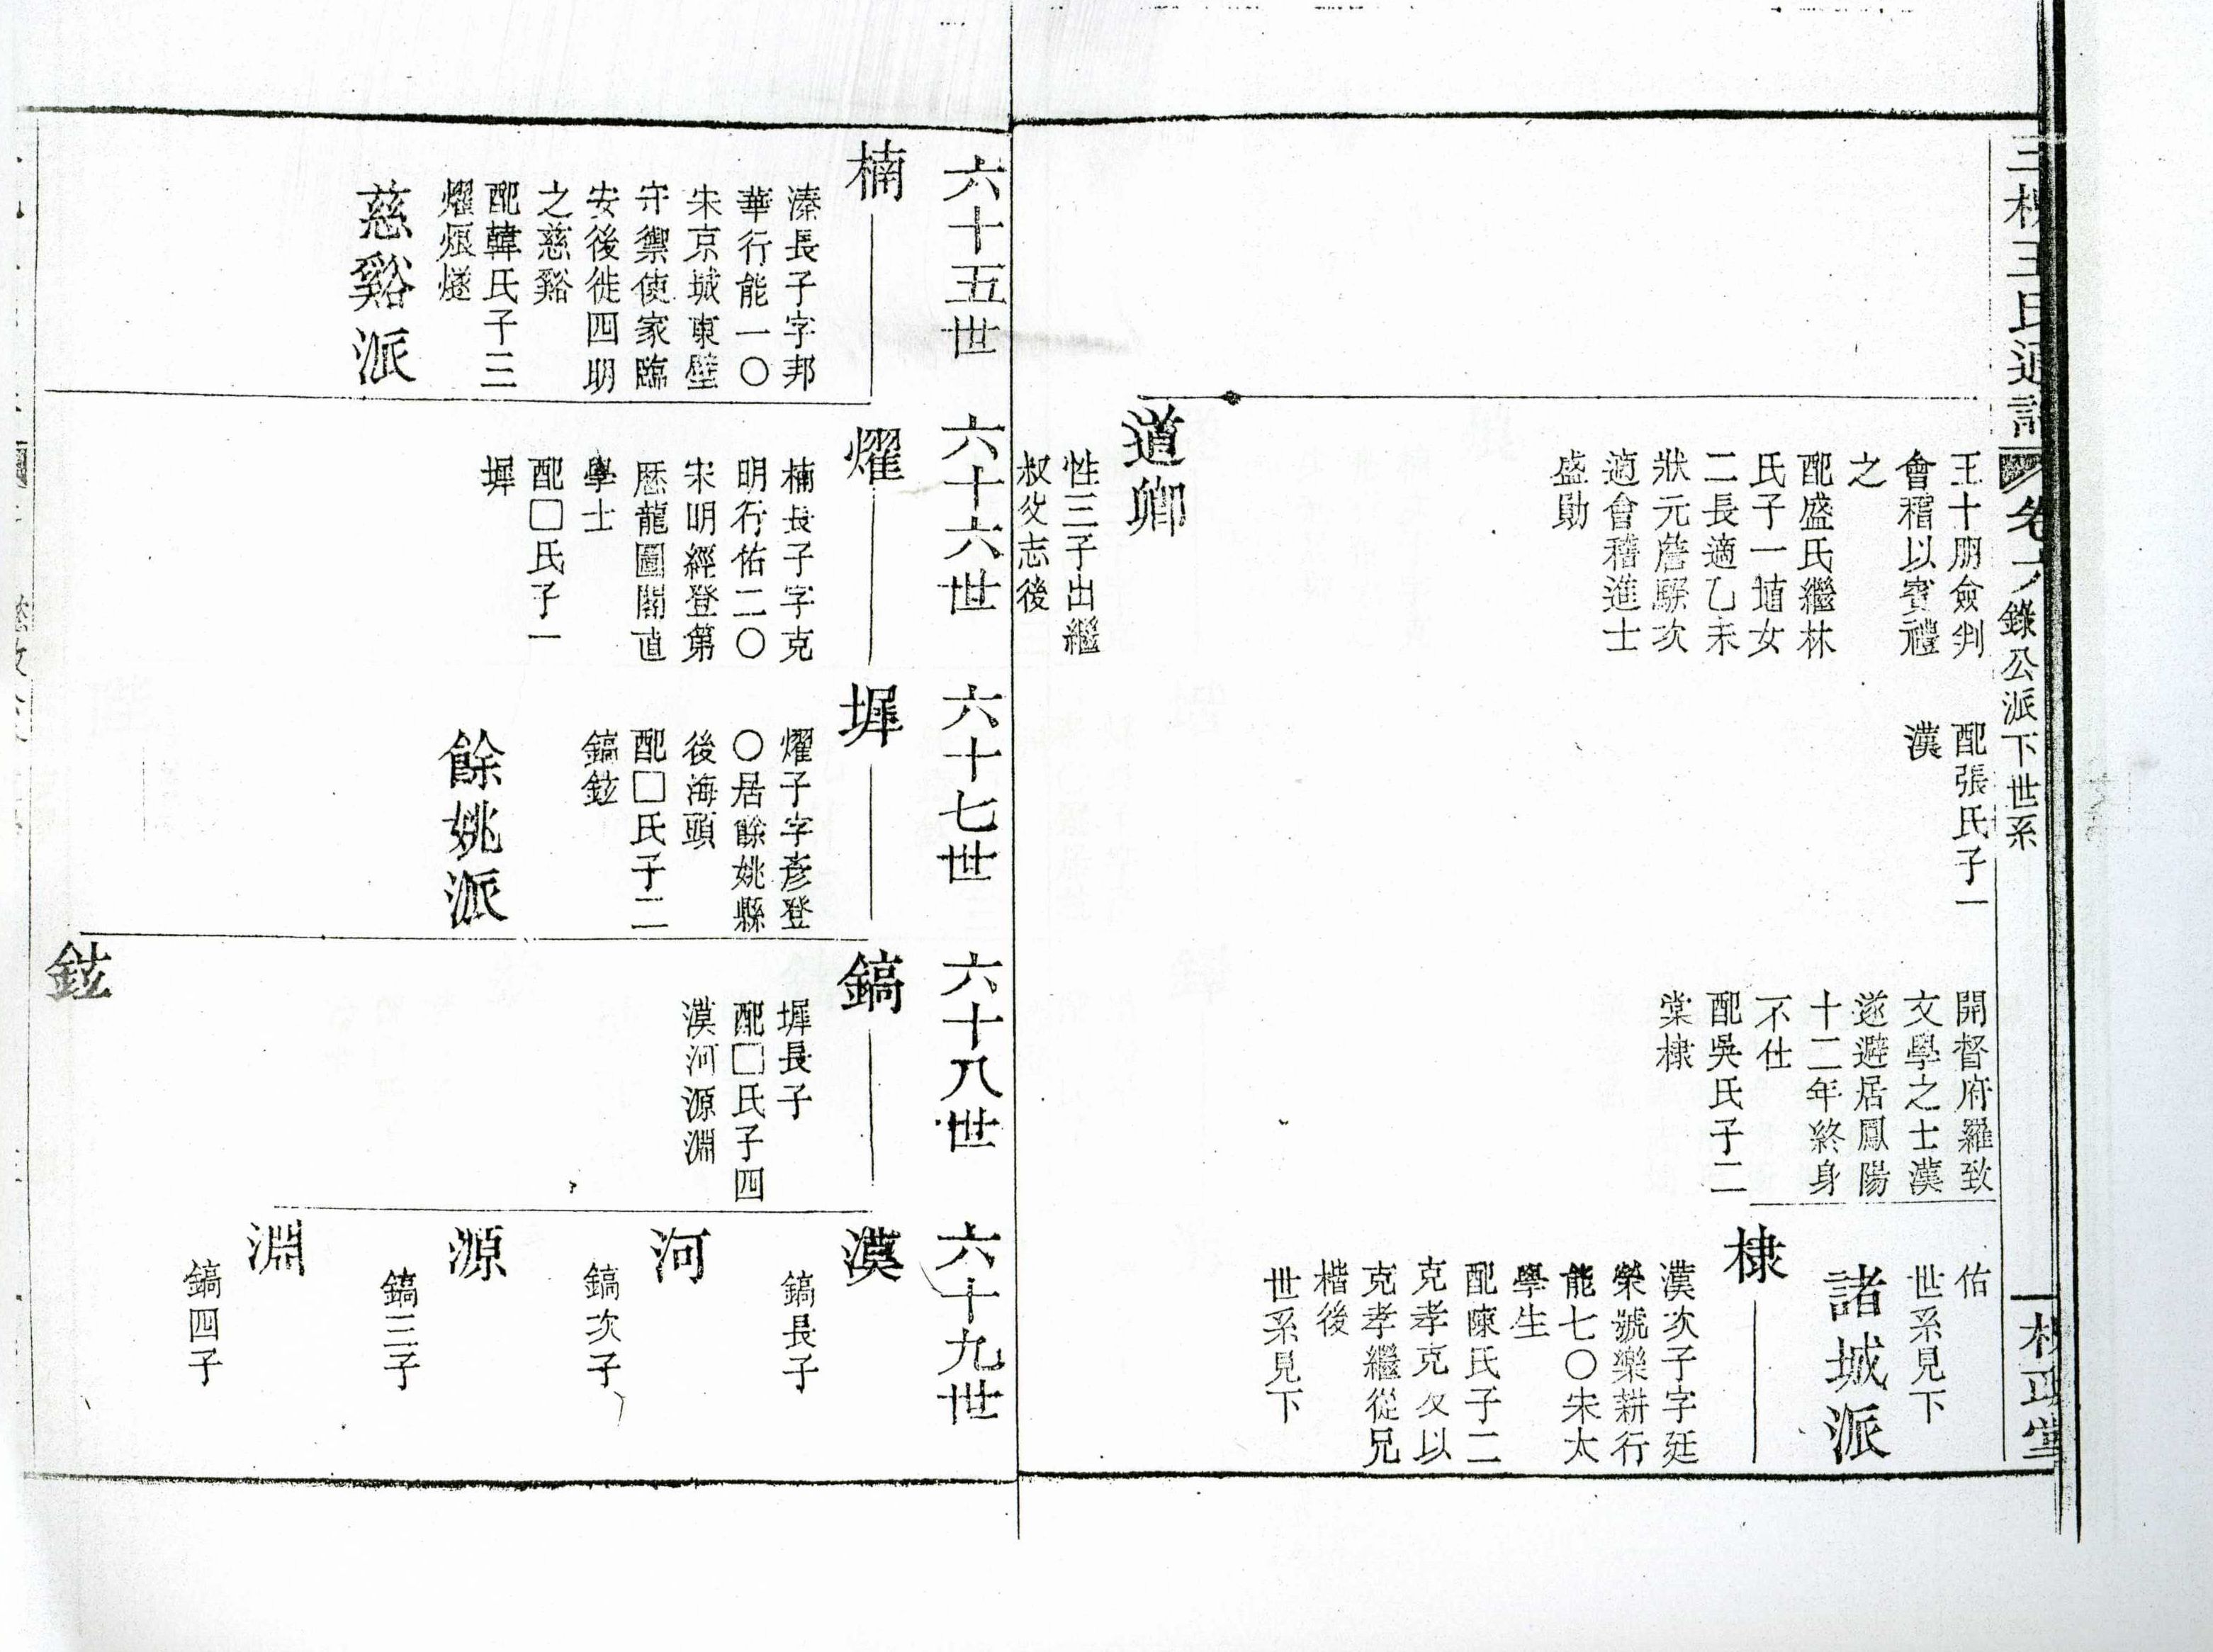 三槐王氏通譜
卷六
錄公派下世系
槐政堂
王十朋僉判
會稽以賓禮
之
配盛氏繼林
氏子一埴女
二長適乙未
狀元詹騤次
適會稽進士
盛勛
道卿
性三子出繼
叔父志後
配張氏子一
漢
開督府羅致
文學之士漢
遂避居鳳陽
十二年終身
不仕
配吳氏子二
棠棣
佑
世系見下
諸城派
棣
漢次子字廷
榮號樂耕行
能七〇宋太
學生
配陳氏子二
克孝克友以
克孝繼從兄
楷後
世系見下
六十五世
楠
溱長子字邦
華行能一〇
宋京城東壁
守禦使家臨
安後徙四明
之慈谿
配韓氏子三
燿烺燧
慈谿派
六十六世
燿
楠長子字克
明行佑二〇
宋明經登第
歷龍圖閣直
學士
配□氏子一
墀
六十七世
墀
燿子字彥登
〇居餘姚縣
後海頭
配□氏子二
鎬鉉
餘姚派
六十八世
鎬
墀長子
配□氏子四
漠河源淵
鉉
六十九世
漠
鎬長子
河
鎬次子
源
鎬三子
淵
鎬四子